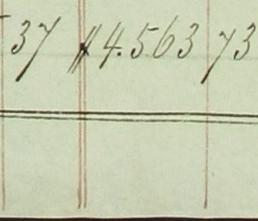 37 $4.563 73